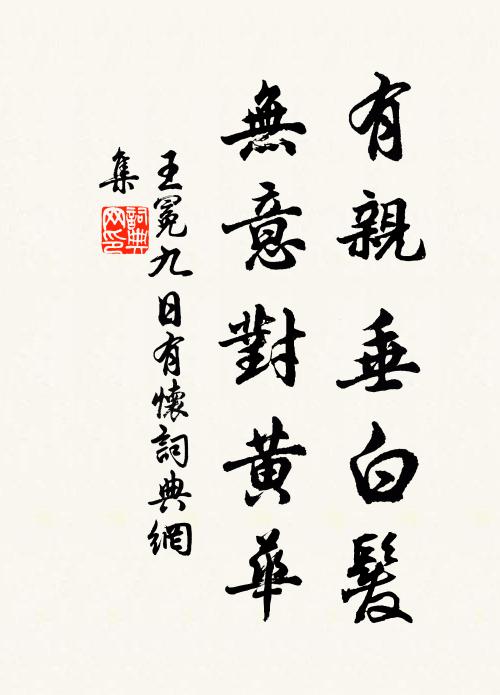 有親垂白髮
無意對黃華
王冕九日有懷詞典網
集
詞典
网印